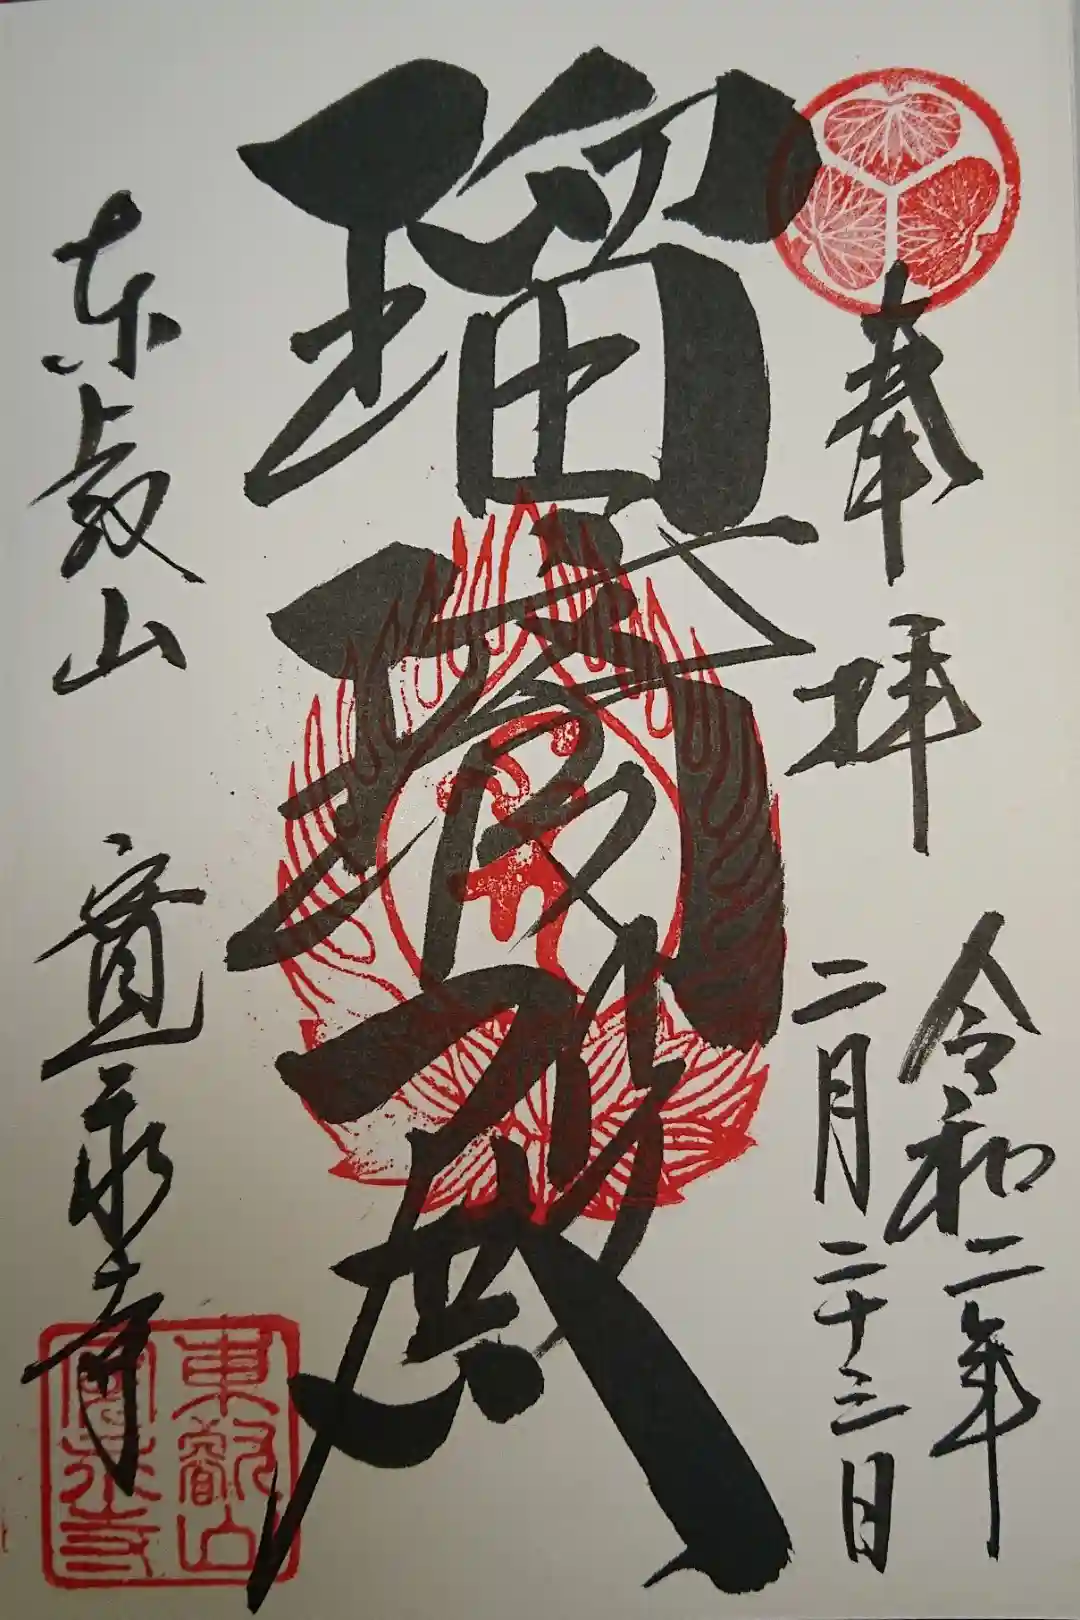 奉拝
令和二年
二月二十三日
瑠璃殿
東叡山 寛永寺
東叡山
寛永寺